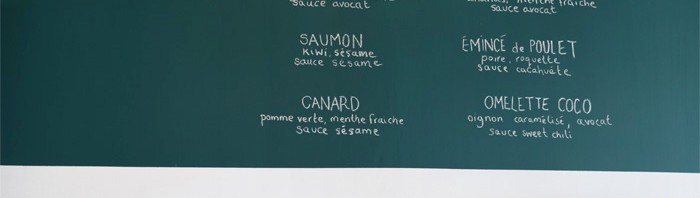 sauce avocat
SAUMON
kiwi, sésame
sauce sesame
CANARD
pomme verte, menthe fraiche
sauce sésame
menthe fraiche
sauce avocat
ÉMINCÉ de POULET
poire, roquette
sauce cacahuète
OMELETTE COCO
oignon caramélisé, avocat
sauce sweet chili